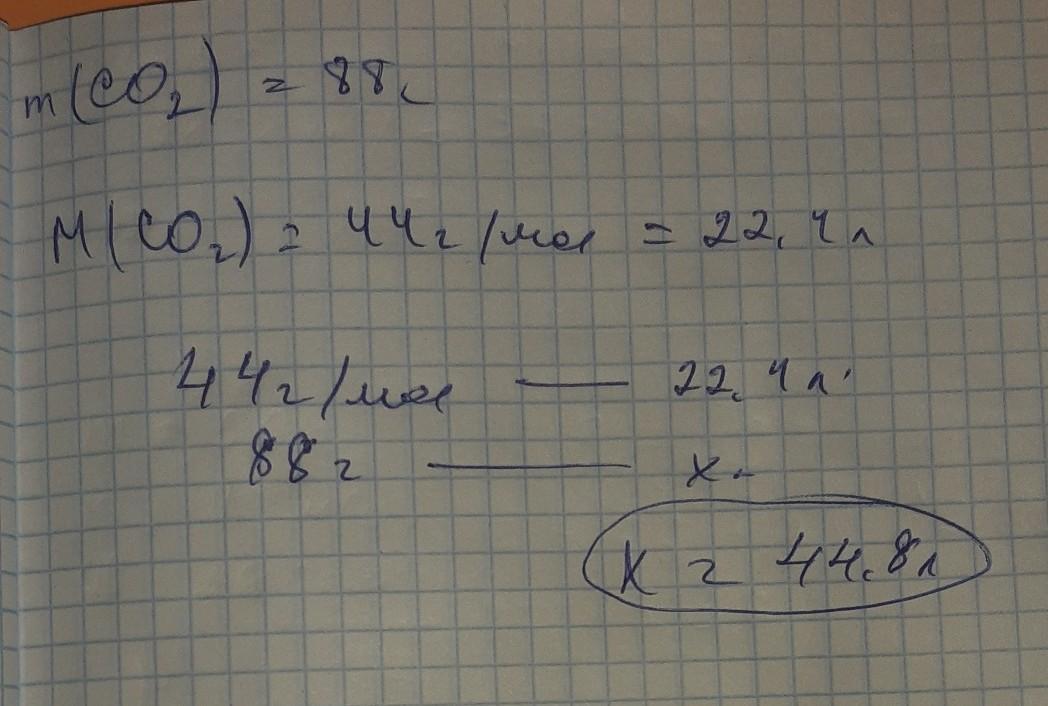 m(CO₂) = 88г
M(CO₂) = 44г/моль = 22,4л
44г/моль — 22,4л
88г — xл
x = 44,8л